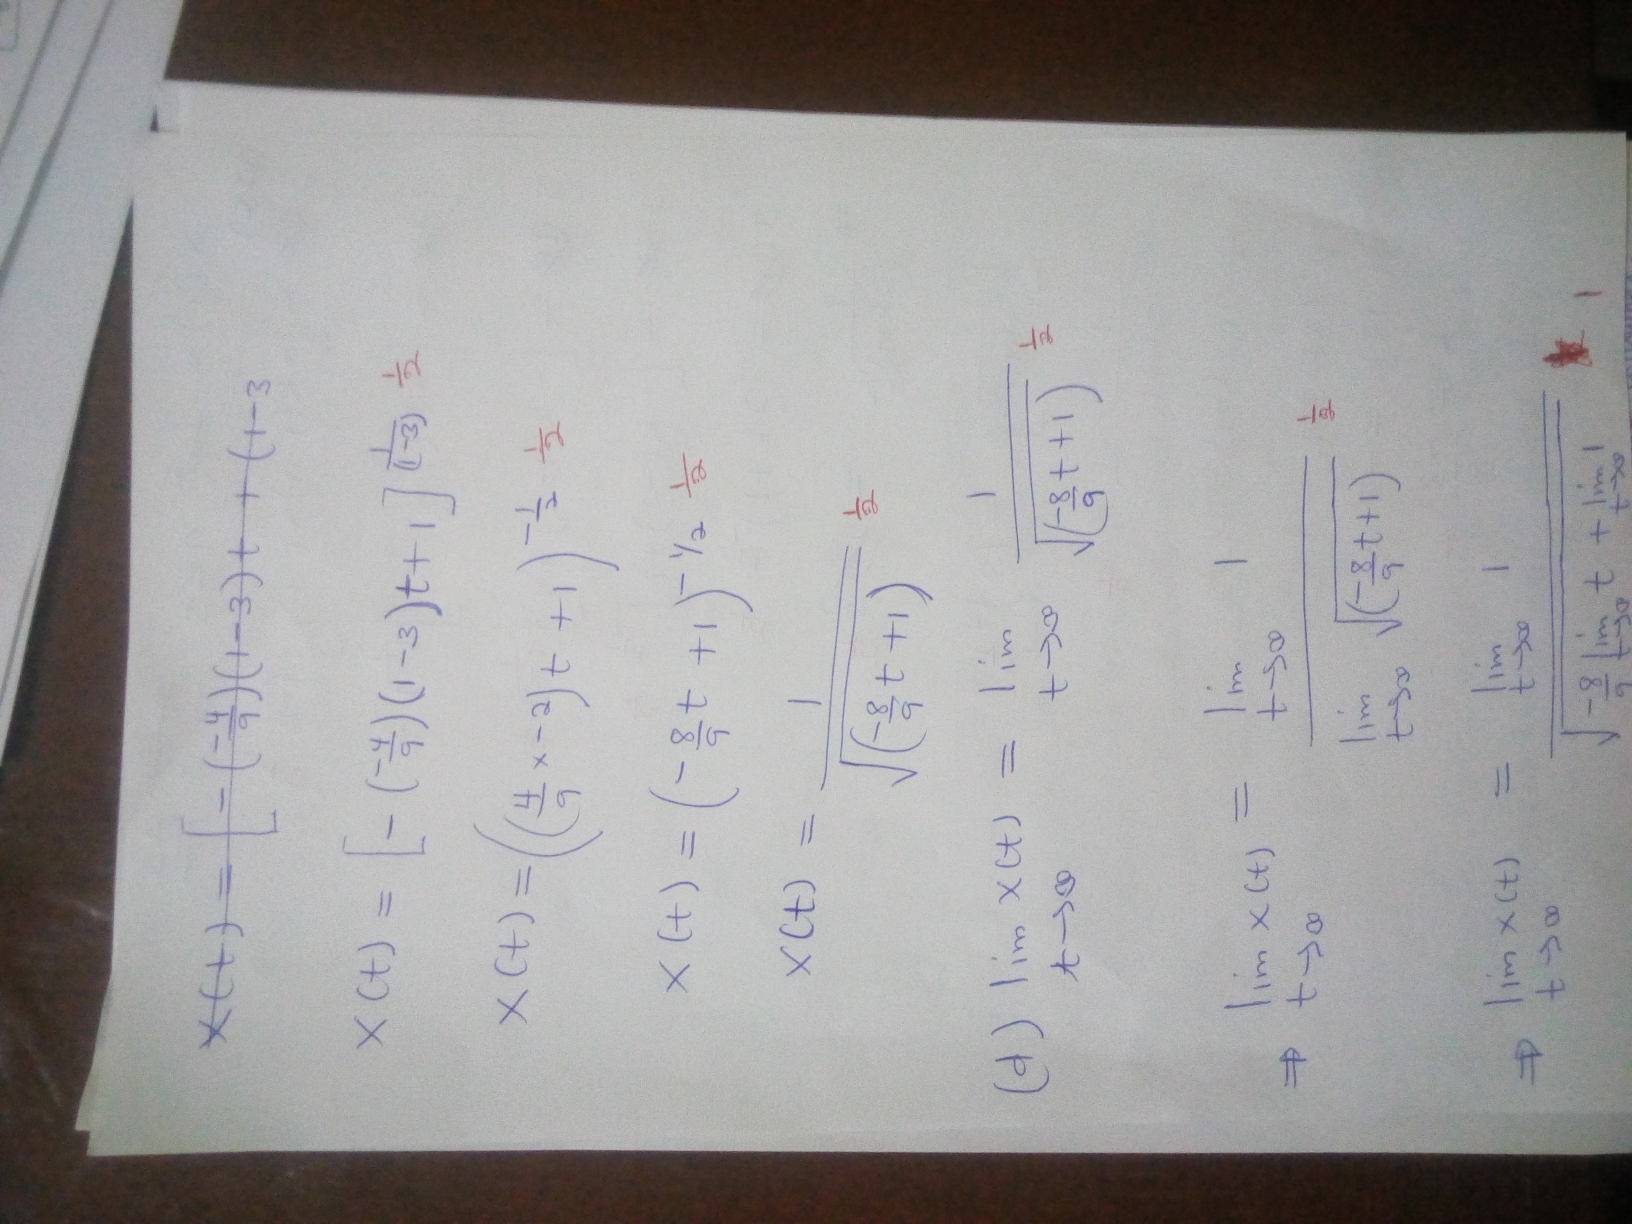 x(t) = [-(-4/9)(1-3)t + (1-3
x(t) = [-(-4/9)(1-3)t+1]^1/(1-3) 1/2
x(t) = ((4/9 x -2)t +1)^-1/2 1/2
x(t) = (-8/9 t +1)^-1/2 1/2
x(t) = 1/√(-8/9 t +1) 1/2
(d) lim t→∞ x(t) = lim t→∞ 1/√(-8/9 t +1) 1/2
⇒ lim t→∞ x(t) = lim t→∞ 1/lim t→∞ √(-8/9 t+1) 1/2
⇒ lim t→∞ x(t) = lim t→∞ 1/√-8/9 lim t→∞ t + lim t→∞ 1 1